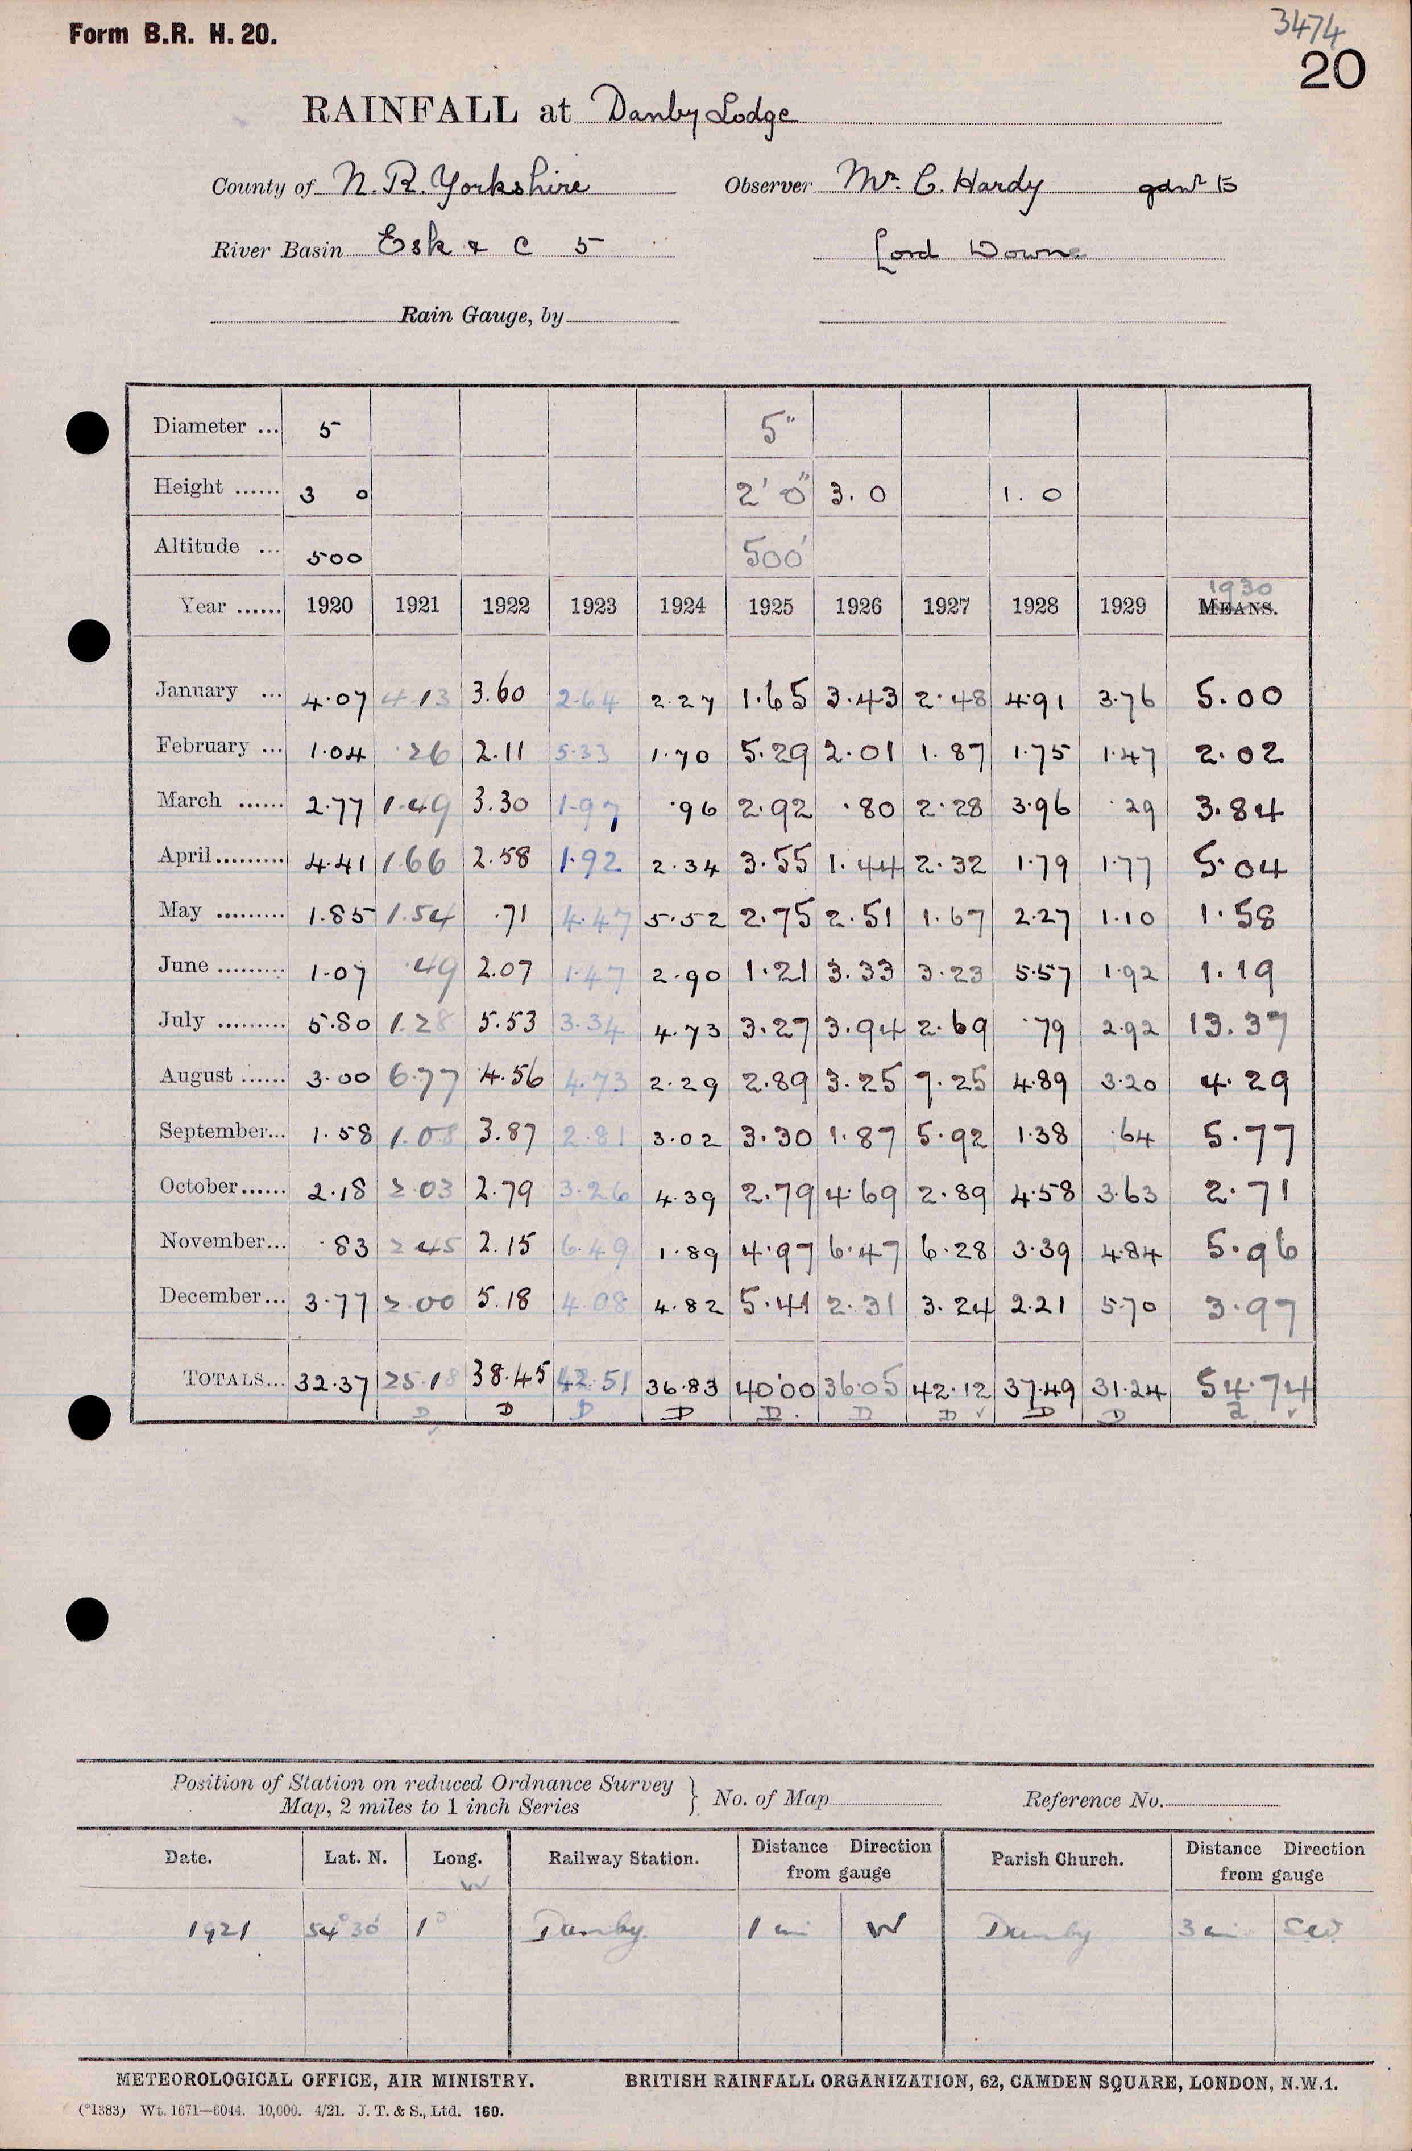 Form B.R. H. 20.
3474
20
RAINFALL at Danby Lodge
County of N. R. Yorkshire Observer Mr. C. Hardy gdnr to
River Basin Esk & C 5 Lord Downe
Rain Gauge, by
Diameter ... 5 5"
Height ...... 3 0 2' 0" 3. 0 1. 0
Altitude ... 500 500'
1930
Year ...... 1920 1921 1922 1923 1924 1925 1926 1927 1928 1929 MEANS.
January ... 4.07 4.13 3.60 2.64 2.27 1.65 3.43 2.48 4.91 3.76 5.00
February ... 1.04 .26 2.11 5.33 1.70 5.29 2.01 1.87 1.75 1.47 2.02
March ...... 2.77 1.49 3.30 1.97 .96 2.92 .80 2.28 3.96 .29 3.84
April......... 4.41 1.66 2.58 1.92 2.34 3.55 1.44 2.32 1.79 1.77 5.04
May ......... 1.85 1.54 .71 4.47 5.52 2.75 2.51 1.67 2.27 1.10 1.58
June ......... 1.07 .49 2.07 1.47 2.90 1.21 3.33 3.23 5.57 1.92 1.19
July ......... 5.80 1.28 5.53 3.34 4.73 3.27 3.94 2.69 .79 2.92 13.37
August ...... 3.00 6.77 4.56 4.73 2.29 2.89 3.25 7.25 4.89 3.20 4.29
September... 1.58 1.08 3.87 2.81 3.02 3.30 1.87 5.92 1.38 .64 5.77
October...... 2.18 2.03 2.79 3.26 4.39 2.79 4.69 2.89 4.58 3.63 2.71
November... .83 2.45 2.15 6.49 1.89 4.97 6.47 6.28 3.39 4.84 5.96
December... 3.77 2.00 5.18 4.08 4.82 5.41 2.31 3.24 2.21 5.70 3.97
TOTALS... 32.37 25.18 38.45 42.51 36.83 40.00 36.05 42.12 37.49 31.24 54.74
D D D D D D D ✓ D D d ✓
Position of Station on reduced Ordnance Survey } No. of Map Reference No.
Map, 2 miles to 1 inch Series
Date. Lat. N. Long. Railway Station. Distance Direction Parish Church. Distance Direction
W from gauge from gauge
1921 54° 30' 1° Danby 1 mi W Danby 3 mi SW
METEOROLOGICAL OFFICE, AIR MINISTRY. BRITISH RAINFALL ORGANIZATION, 62, CAMDEN SQUARE, LONDON, N.W.1.
(*1383) Wt. 1671—6044. 10,000. 4/21. J. T. & S., Ltd. 160.